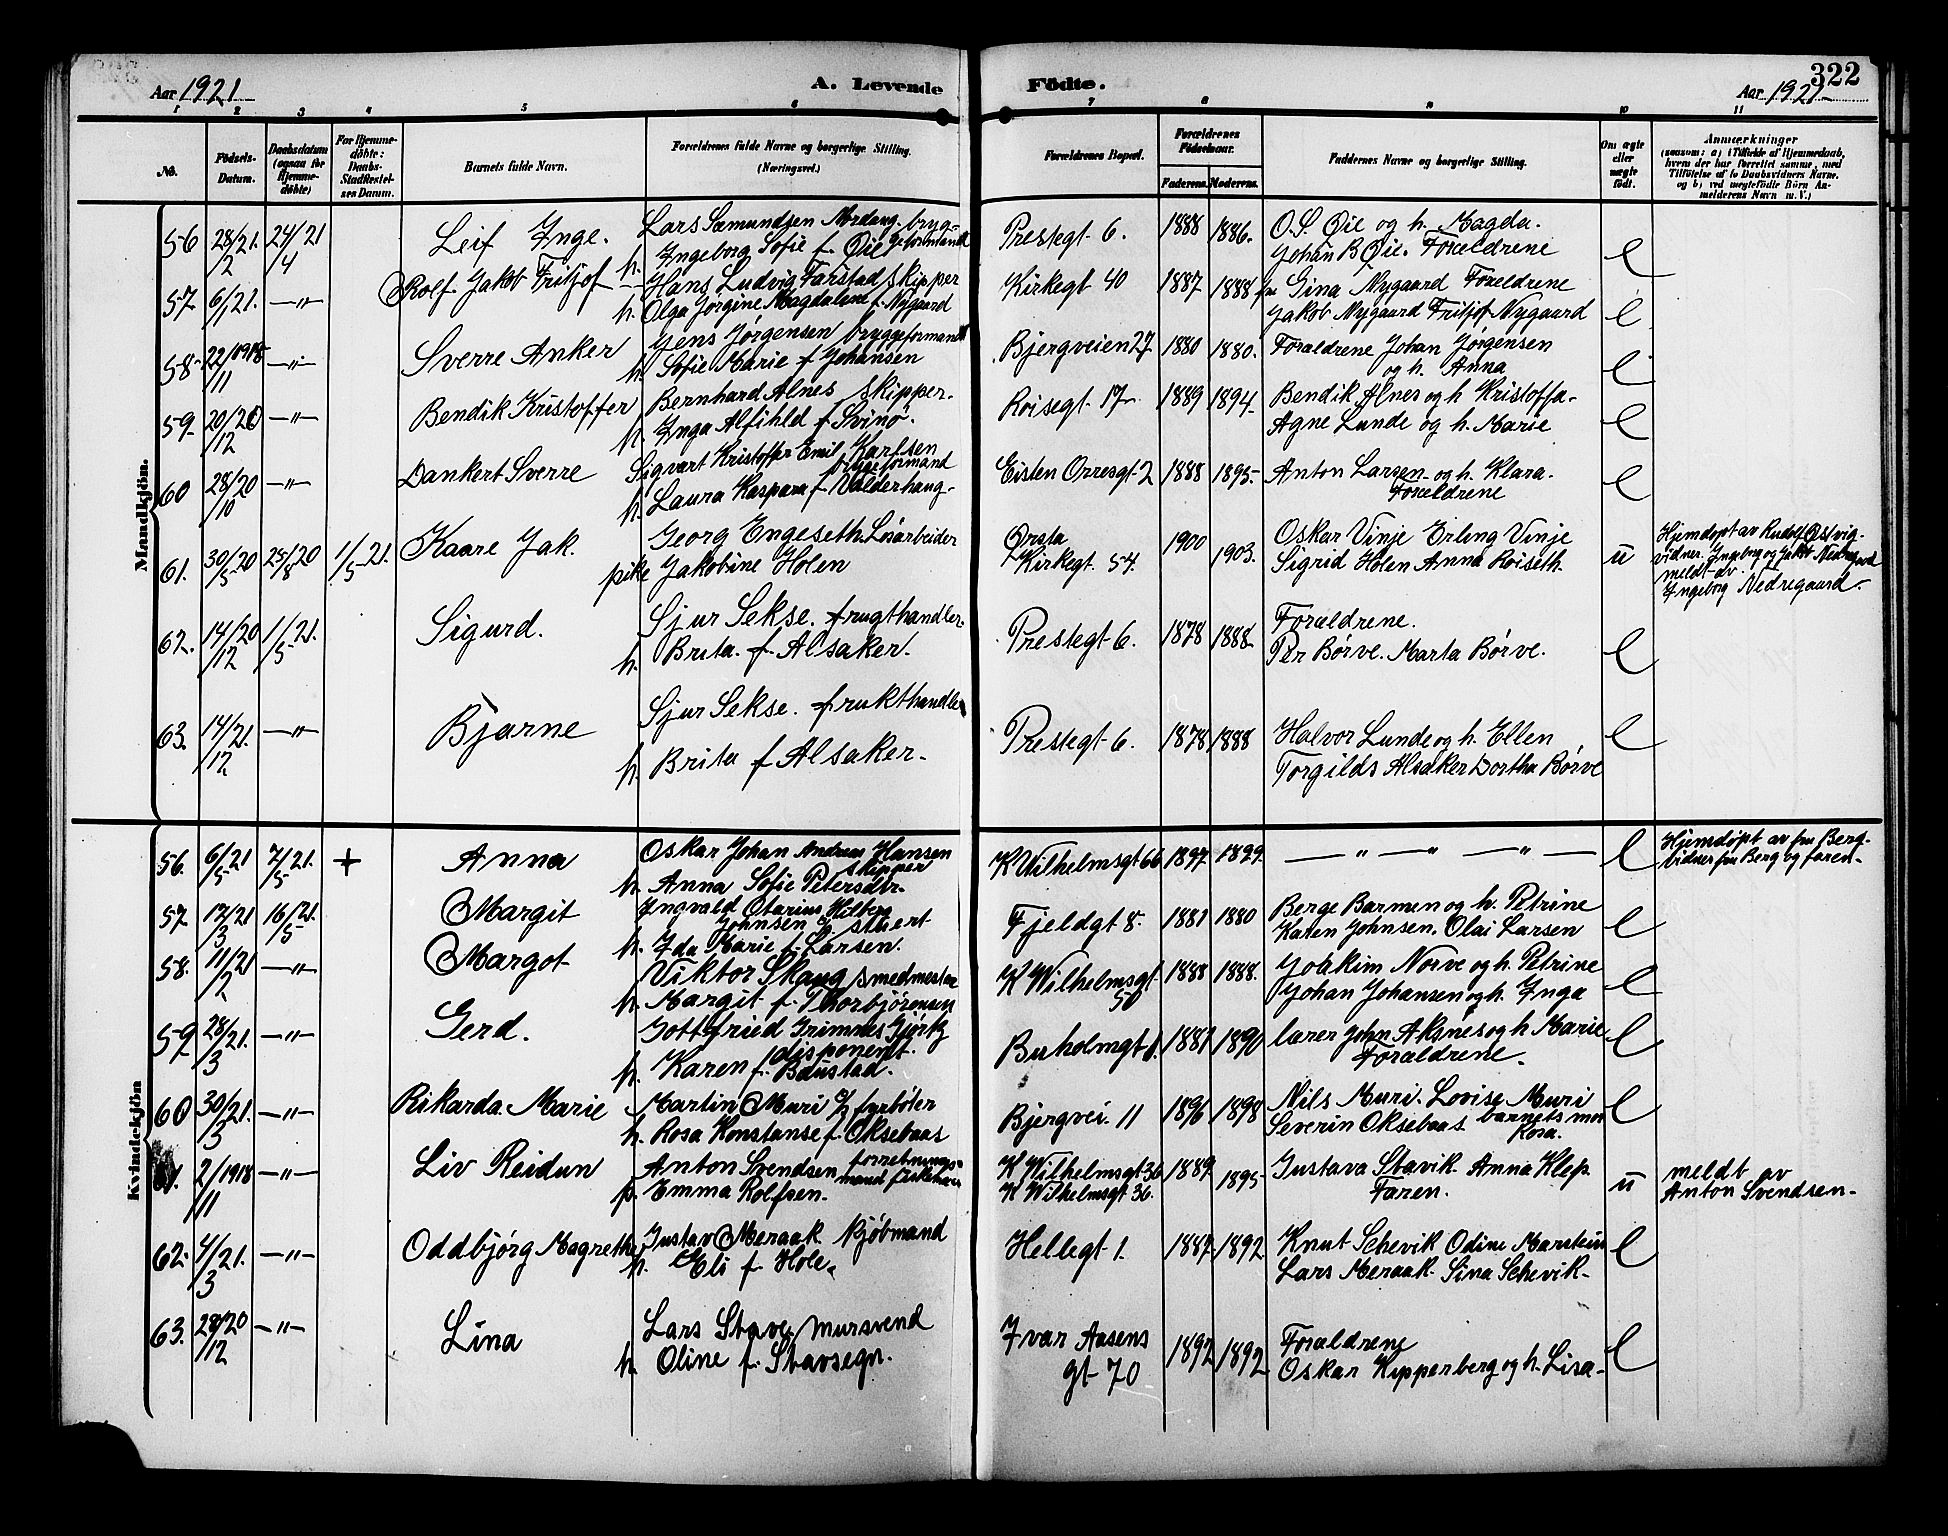 322
Aar 1921
A. Levende Födte.
Aar 1921
1 2 3 4 5 6 7 8 9 10 11
No.
Födsels-Datum.
Daabsdatum (ogsaa för Hjemmedöbte)
For Hjemmedöbte: Daabs-Stadfæstelses Datum.
Barnets fulde Navn.
Forældrenes fulde Navne og borgerlige Stilling. (Næringsvei.)
Forældrenes Bopæl.
Forældrenes Födselsaar.
Faderens. Moderens.
Faddernes Navne og borgerlige Stilling.
Om ægte eller uægte födt.
Anmærkninger
(saasom: a) i Tilfælde af Hjemmedaab, hvem der har forrettet samme, med Tilföielse af to Daabsvidners Navne. og b) ved uægtefödte Börn Anmelderens Navn m.V.)
Mandkjön.
56 28/2 21. 24/4 21 Leif Inge. Lars Sæmundsen Nordang bryggeformand
h. Ingeborg Sofie f. Øie
Prestegt 6. 1888 1886. O.S. Øie og h. Magda.
Johan B Øie. Forældrene e
57 6/1 21. —"— Rolf Jakob Fritjof Hans Ludvig Farstad skipper
h. Olga Jørgine Magdalene f. Nygaard
Kirkegt 40 1887 1888 fru Gina Nygaard Forældrene
Jakob Nygaard Fritjof Nygaard e
58 22/11 1918 —"— Sverre Anker Jens Jørgensen bryggeformand
h. Sofie Marie f Johansen
Bjergveien 27 1880 1880. Forældrene Johan Jørgensen
og h. Anna e
59. 20/12 20 —"— Bendik Kristoffer Bernhard Alnes skipper.
h. Inga Alfihld f Svinø.
Roisegt. 17 1889 1894 Bendik Alnes og h Kristoffa
Agne Lunde og h. Marie e
60 28/10 20 —"— Dankert Sverre Sigvart Kristoffer Emil Karlsen
bryggeformand
h. Laura Kaspara f Valderhaug
Eisten Orresgt 2 1888 1895 Anton Larsen og h. Klara
Forældrene e
61. 30/5 20 25/8 20 1/5 21. Kaare Jak. Georg Engeseth. Løsarbeider
pike Jakobine Holen
Ørsta
Kirkegt. 54. 1900 1903. Oskar Vinje Erling Vinje
Sigrid Holen Anna Roiseth. u
Hjemdøpt av Rudolf Østvig
vidner. Ingeborg og Jakob Nedregaard
meldt av
Ingeborg Nedregaard.
62. 14/12 20 1/5 21. Sigurd. Sjur Sekse. frugthandler
h. Brita. f Alsaker.
Prestegt 6. 1878 1888 Forældrene.
Per Børve. Marta Børve. e
63. 14/12 21. —"— Bjarne Sjur Sekse. frukthandler
h. Brita f Alsaker.
Prestegt 6. 1878 1888 Halvor Lunde og h. Ellen
Torgilds Alsaker Dortha Børve e
Kvindekjön
56. 6/5 21 7/5 21. + Anna Oskar Johan Andreas Hansen
skipper
h. Anna Sofie Petersdtr.
K Wilhelmsgt 66 1897 1899. —"—"—"— e
Hjemdøpt av fru Berg
vidner fru Berg og faren
57 12/3 21 16/5 21. Margit Ingvald Otarius Hilbert
Johnsen stuert
h. Ida Marie f. Larsen.
Fjeldgt 8. 1881 1880 Berge Barmen og h. Petrine
Karen Johnsen. Olai Larsen e
58. 11/2 21 —"— Margot Viktor Skaug smedmester
h. Margit f. Thorbjørensen
K Wilhelmsgt
50 1888 1888. Joakim Norve og h. Petrine
Johan Johansen og h. Inga e
59 28/3 21. —"— Gerd. Gottfried Grimnes Gjørtz
disponent.
h. Karen f. Baustad.
Buholmgt 1. 1881 1890 lærer John Aksnes og h. Marie
Forældrene e
60 30/3 21. —"— Rikarda Marie Martin Muri fyrbøter
h. Rosa Konstanse f. Oksebaas
Bjergvei. 11 1896 1898 Nils Muri. Lovise Muri
Severin Oksebaas barnets mor
Rosa. e
61. 2/11 1918 —"— Liv Reidun Anton Svendsen forretningsmand
p. Emma Rolfsen.
K Wilhelmsgt 36
K Wilhelmsgt 36. 1889 1895 Gustava Stavik Anna Klep
Faren. u
meldt av
Anton Svendsen
62. 4/3 21. —"— Oddbjørg Magrethe Gustav Meraak kjøbmand
h. Eli f Hole.
Hellegt 1. 1887 1892 Knut Schevik Odine Marstein
Lars Meraak. Sina Schevik e
63. 28/12 20 —"— Lina Lars Stave mursvend
h. Oline f. Stavsegn.
Ivar Aasens
gt 70 1892 1892 Forældrene
Oskar Kipperberg og h. Lisa e